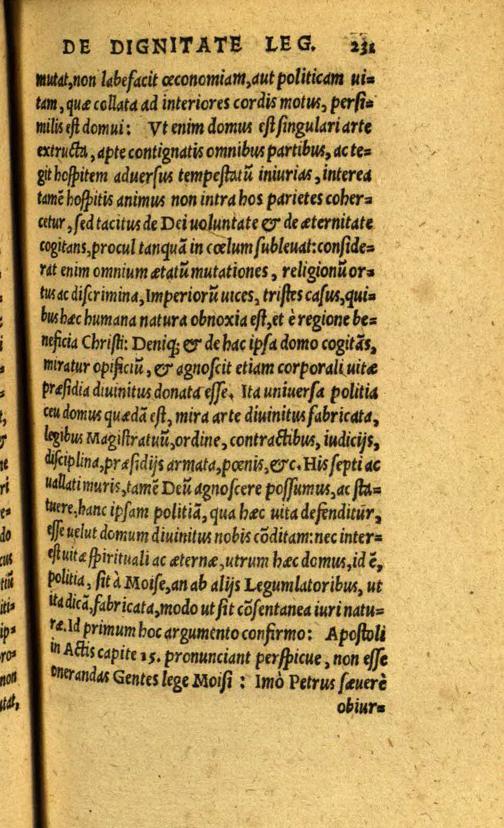 DE DIGNITATE LEG. 231
mutat, non labefacit œconomiam, aut politicam ui=
tam, quæ collata ad interiores cordis motus, persi=
milis est domui: Vt enim domus est singulari arte
extructa, apte contignatis omnibus partibus, ac te=
git hospitem aduersus tempestatũ iniurias, interea
tamẽ hospitis animus non intra hos parietes coher=
cetur, sed tacitus de Dei uoluntate & de æternitate
cogitans, procul tanquã in cœlum subleuat: conside=
rat enim omnium ætatũ mutationes, religionũ or=
tus ac discrimina, Imperiorũ uices, tristes casus, qui=
bus hæc humana natura obnoxia est, et è regione be=
neficia Christi: Deniq; & de hac ipsa domo cogitãs,
miratur opificiũ, & agnoscit etiam corporali uitæ
præsidia diuinitus donata esse. Ita uniuersa politia
ceu domus quædã est, mira arte diuinitus fabricata,
legibus Magistratuũ, ordine, contractibus, iudicijs,
disciplina, præsidijs armata, pœnis, &c. His septi ac
uallati muris, tamẽ Deũ agnoscere possumus, ac sta=
tuere, hanc ipsam politiã, qua hæc uita defenditur,
esse uelut domum diuinitus nobis cõditam: nec inter=
est uitæ spirituali ac æternæ, utrum hæc domus, id ẽ,
politia, sit à Moise, an ab alijs Legumlatoribus, ut
ita dicã, fabricata, modo ut sit cõsentanea iuri natu=
ræ. Id primum hoc argumento confirmo: Apostoli
in Actis capite 15. pronunciant perspicue, non esse
onerandas Gentes lege Moisi: Imò Petrus sæuerè
obiur=